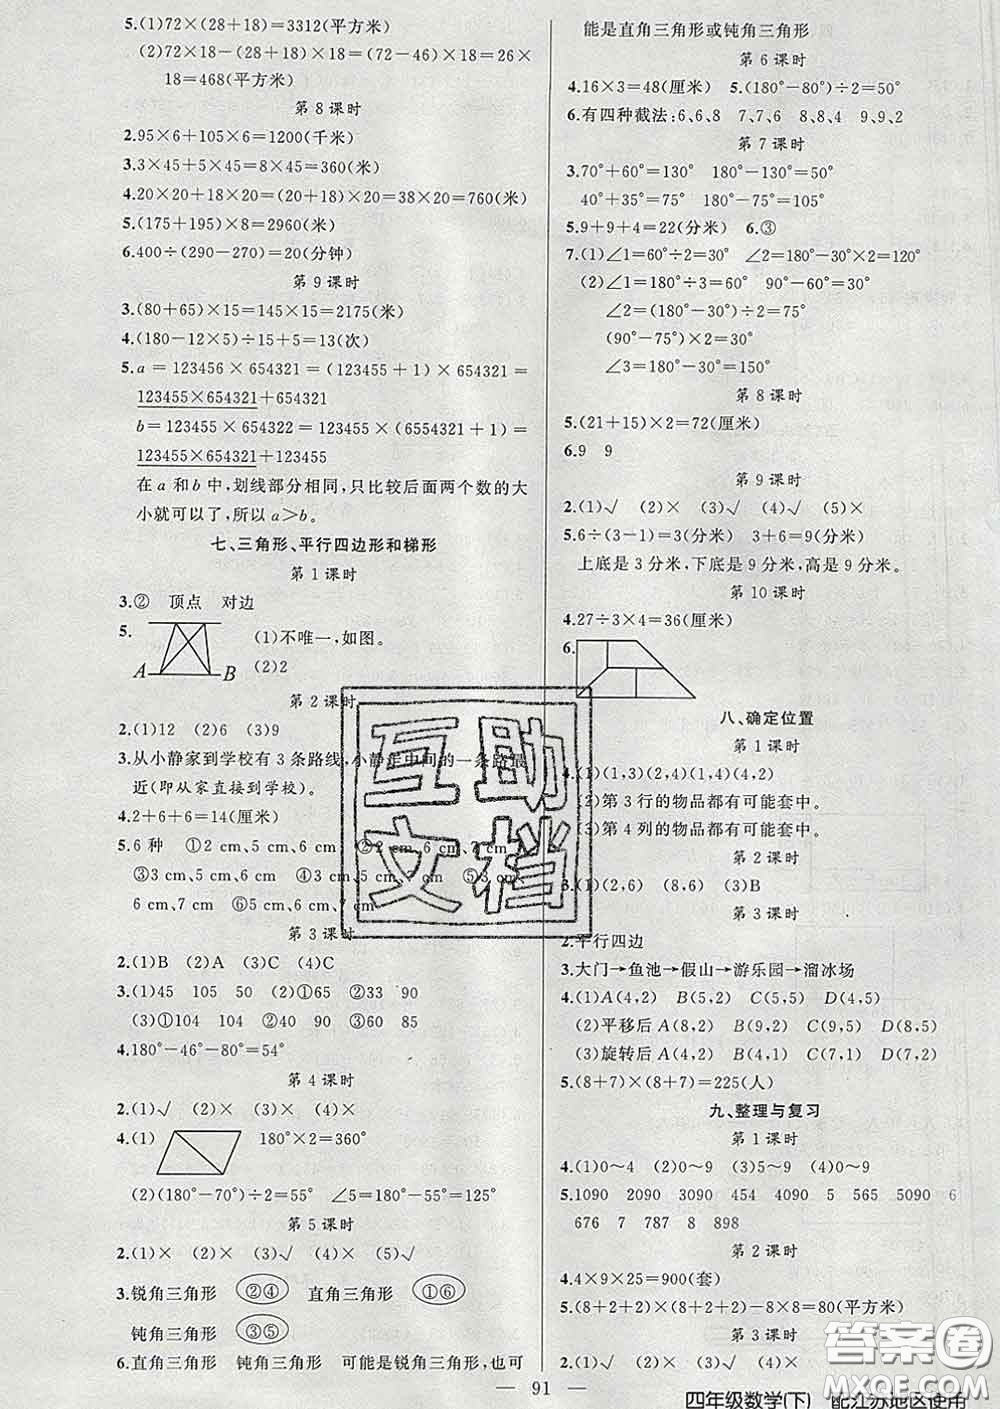 5.(1)72×(28+18)=3312(平方米)
(2)72×18-(28+18)×18=(72-46)×18=26×
18=468(平方米)
第 8 课时
2.95×6+105×6=1200(千米)
3.3×45+5×45=8×45=360(米)
4.20×20+18×20=(20+18)×20=38×20=760(米)
5.(175+195)×8=2960(米)
6.400÷(290-270)=20(分钟)
第 9 课时
3.(80+65)×15=145×15=2175(米)
4.(180-12×5)÷15+5=13(次)
5.a=123456×654321=(123455+1)×654321=
123455×654321+654321
b=123455×654322=123455×(6554321+1)=
123455×654321+123455
在 a 和 b 中,划线部分相同,只比较后面两个数的大
小就可以了,所以 a>b。
七、三角形、平行四边形和梯形
第 1 课时
3.② 顶点 对边
5. (1)不唯一,如图。
A B (2)2
第 2 课时
2.(1)12 (2)6 (3)9
3.从小静家到学校有 3 条路线,小静走中间的一条路最
近(即从家直接到学校)。
4.2+6+6=14(厘米)
5.6 种 ①2 cm、5 cm、6 cm ②2 cm、6 cm、7 cm
③3 cm、5 cm、6 cm ④3 cm、5 cm、7 cm ⑤3 cm、
6 cm、7 cm ⑥5 cm、6 cm、7 cm
第 3 课时
2.(1)B (2)A (3)C (4)C
3.(1)45 105 50 (2)①65 ②33 90
(3)①104 104 ②40 90 ③60 85
4.180°-46°-80°=54°
第 4 课时
2.(1)√ (2)× (3)× (4)√
4.(1) 180°×2=360°
(2)(180°-70°)÷2=55° ∠5=180°-55°=125°
第 5 课时
2.(1)× (2)× (3)√ (4)× (5)√
3.锐角三角形 ②④ 直角三角形 ①⑥
钝角三角形 ③⑤
6.直角三角形 钝角三角形 可能是锐角三角形,也可
能是直角三角形或钝角三角形
第 6 课时
4.16×3=48(厘米) 5.(180°-80°)÷2=50°
6.有四种截法:6、6、8 7、7、6 8、8、4 9、9、2
第 7 课时
3.70°+60°=130° 180°-130°=50°
40°+35°=75° 180°-75°=105°
5.9+9+4=22(分米) 6.③
7.(1)∠1=60°÷2=30° ∠2=180°-30°×2=120°
(2)∠1=180°÷3=60° 90°-60°=30°
∠2=(180°-30°)÷2=75°
(90°-75°)×2=30°
∠3=180°-30°=150°
第 8 课时
5.(21+15)×2=72(厘米)
6.9 9
第 9 课时
2.(1)√ (2)× (3)√ (4)√ (5)×
5.6÷(3-1)=3(分米) 3+6=9(分米)
上底是 3 分米,下底是 9 分米,高是 9 分米。
第 10 课时
4.27÷3×4=36(厘米)
6.
八、确定位置
第 1 课时
4.(1)(1,3)(2,4)(4,1)(4,2)
(2)第 3 行的物品都有可能套中。
(3)第 4 列的物品都有可能套中。
第 2 课时
3.(1)(2,6) (8,6) (3)B
第 3 课时
2.平行四边
3.大门→鱼池→假山→游乐园→溜冰场
4.(1)A(4,2) B(5,2) C(5,5) D(4,5)
(2)平移后 A(8,2) B(9,2) C(9,5) D(8,5)
(3)旋转后 A(4,2) B(4,1) C(7,1) D(7,2)
5.(8+7)×(8+7)=225(人)
九、整理与复习
第 1 课时
4.(1)0~4 (2)0~9 (3)5~9 (4)0~4
5.1090 2090 3090 454 4090 5 565 5090 6
676 7 787 8 898
第 2 课时
4.4×9×25=900(套)
5.(8+2+2)×(8+2+2)-8×8=80(平方米)
第 3 课时
2.(1)√ (2)× (3)√ (4)×
— 91 —
四年级数学(下) 配江苏地区使用
互助
文档
答案圈
MXQE.COM